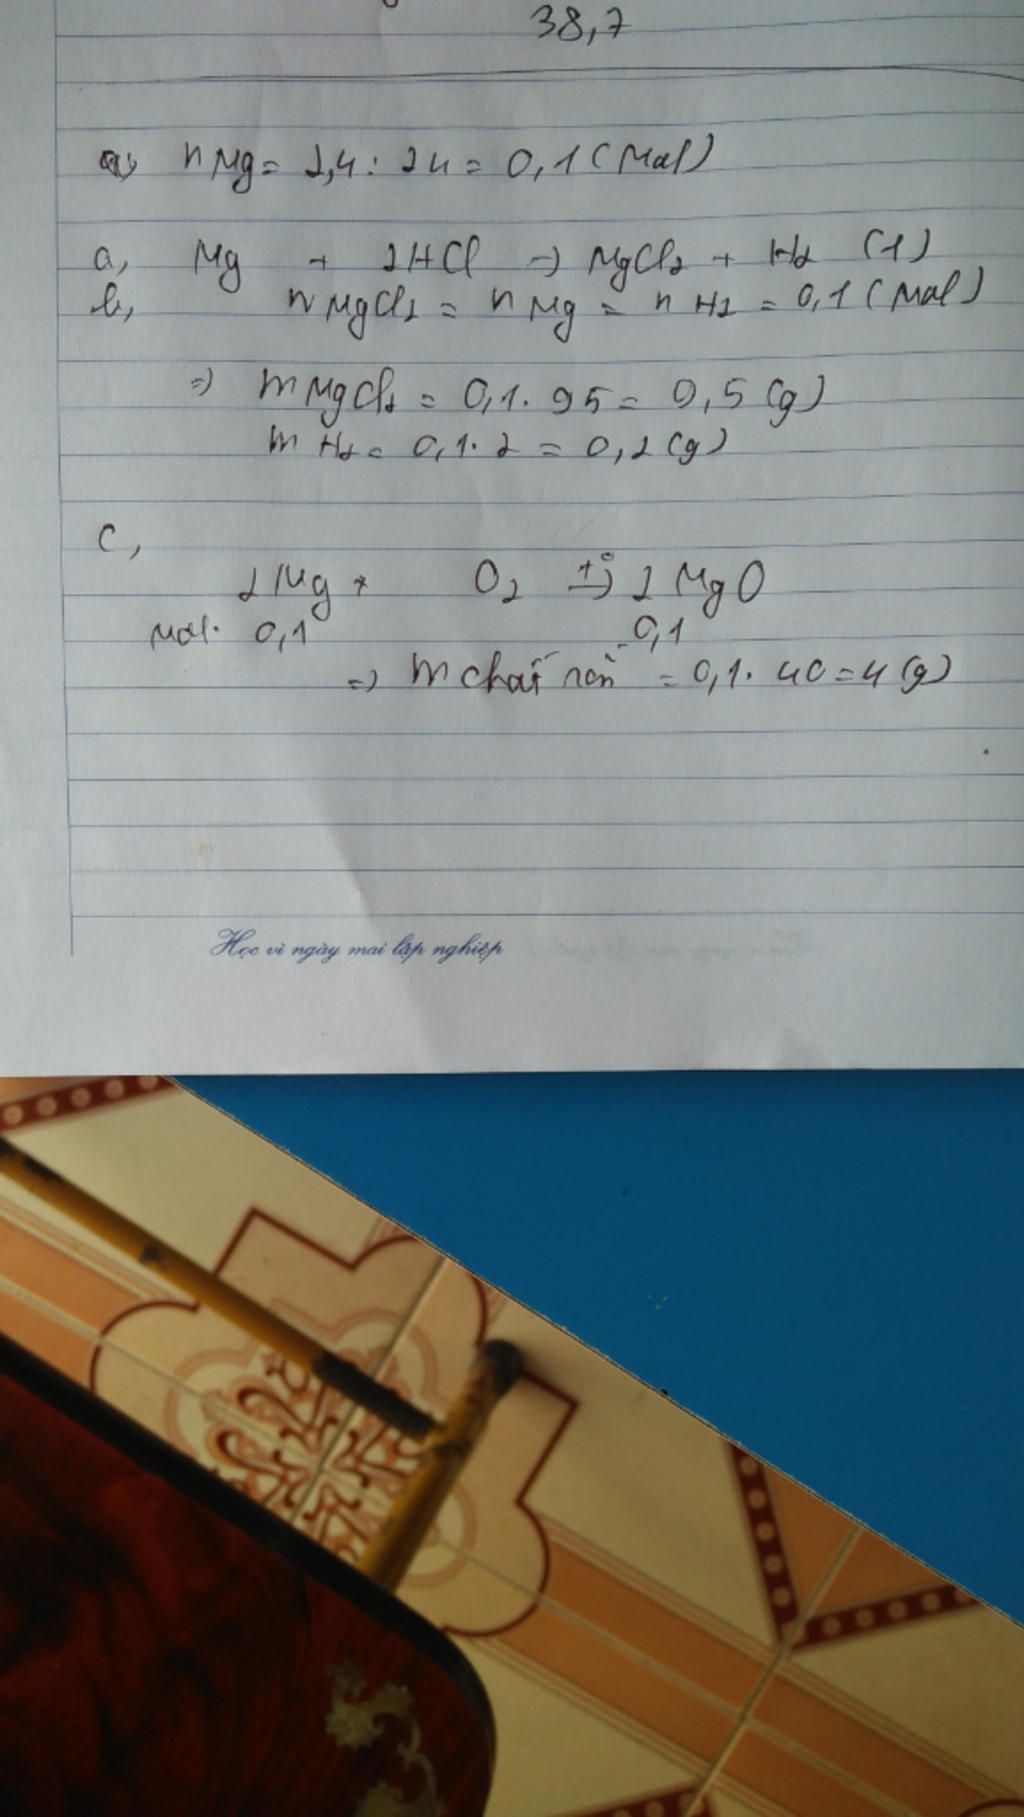 38,7
a, nMg = 2,4 : 24 = 0,1 (Mol)
a, Mg + 2HCl → MgCl2 + H2 (1)
b, nMgCl2 = nMg = nH2 = 0,1 (Mol)
=> mMgCl2 = 0,1 . 95 = 0,5 (g)
mH2 = 0,1 . 2 = 0,2 (g)
c,
2Mg + O2 t°→ 2MgO
Mol: 0,1 0,1
=> m chất rắn = 0,1 . 40 = 4 (g)
Học vì ngày mai lập nghiệp